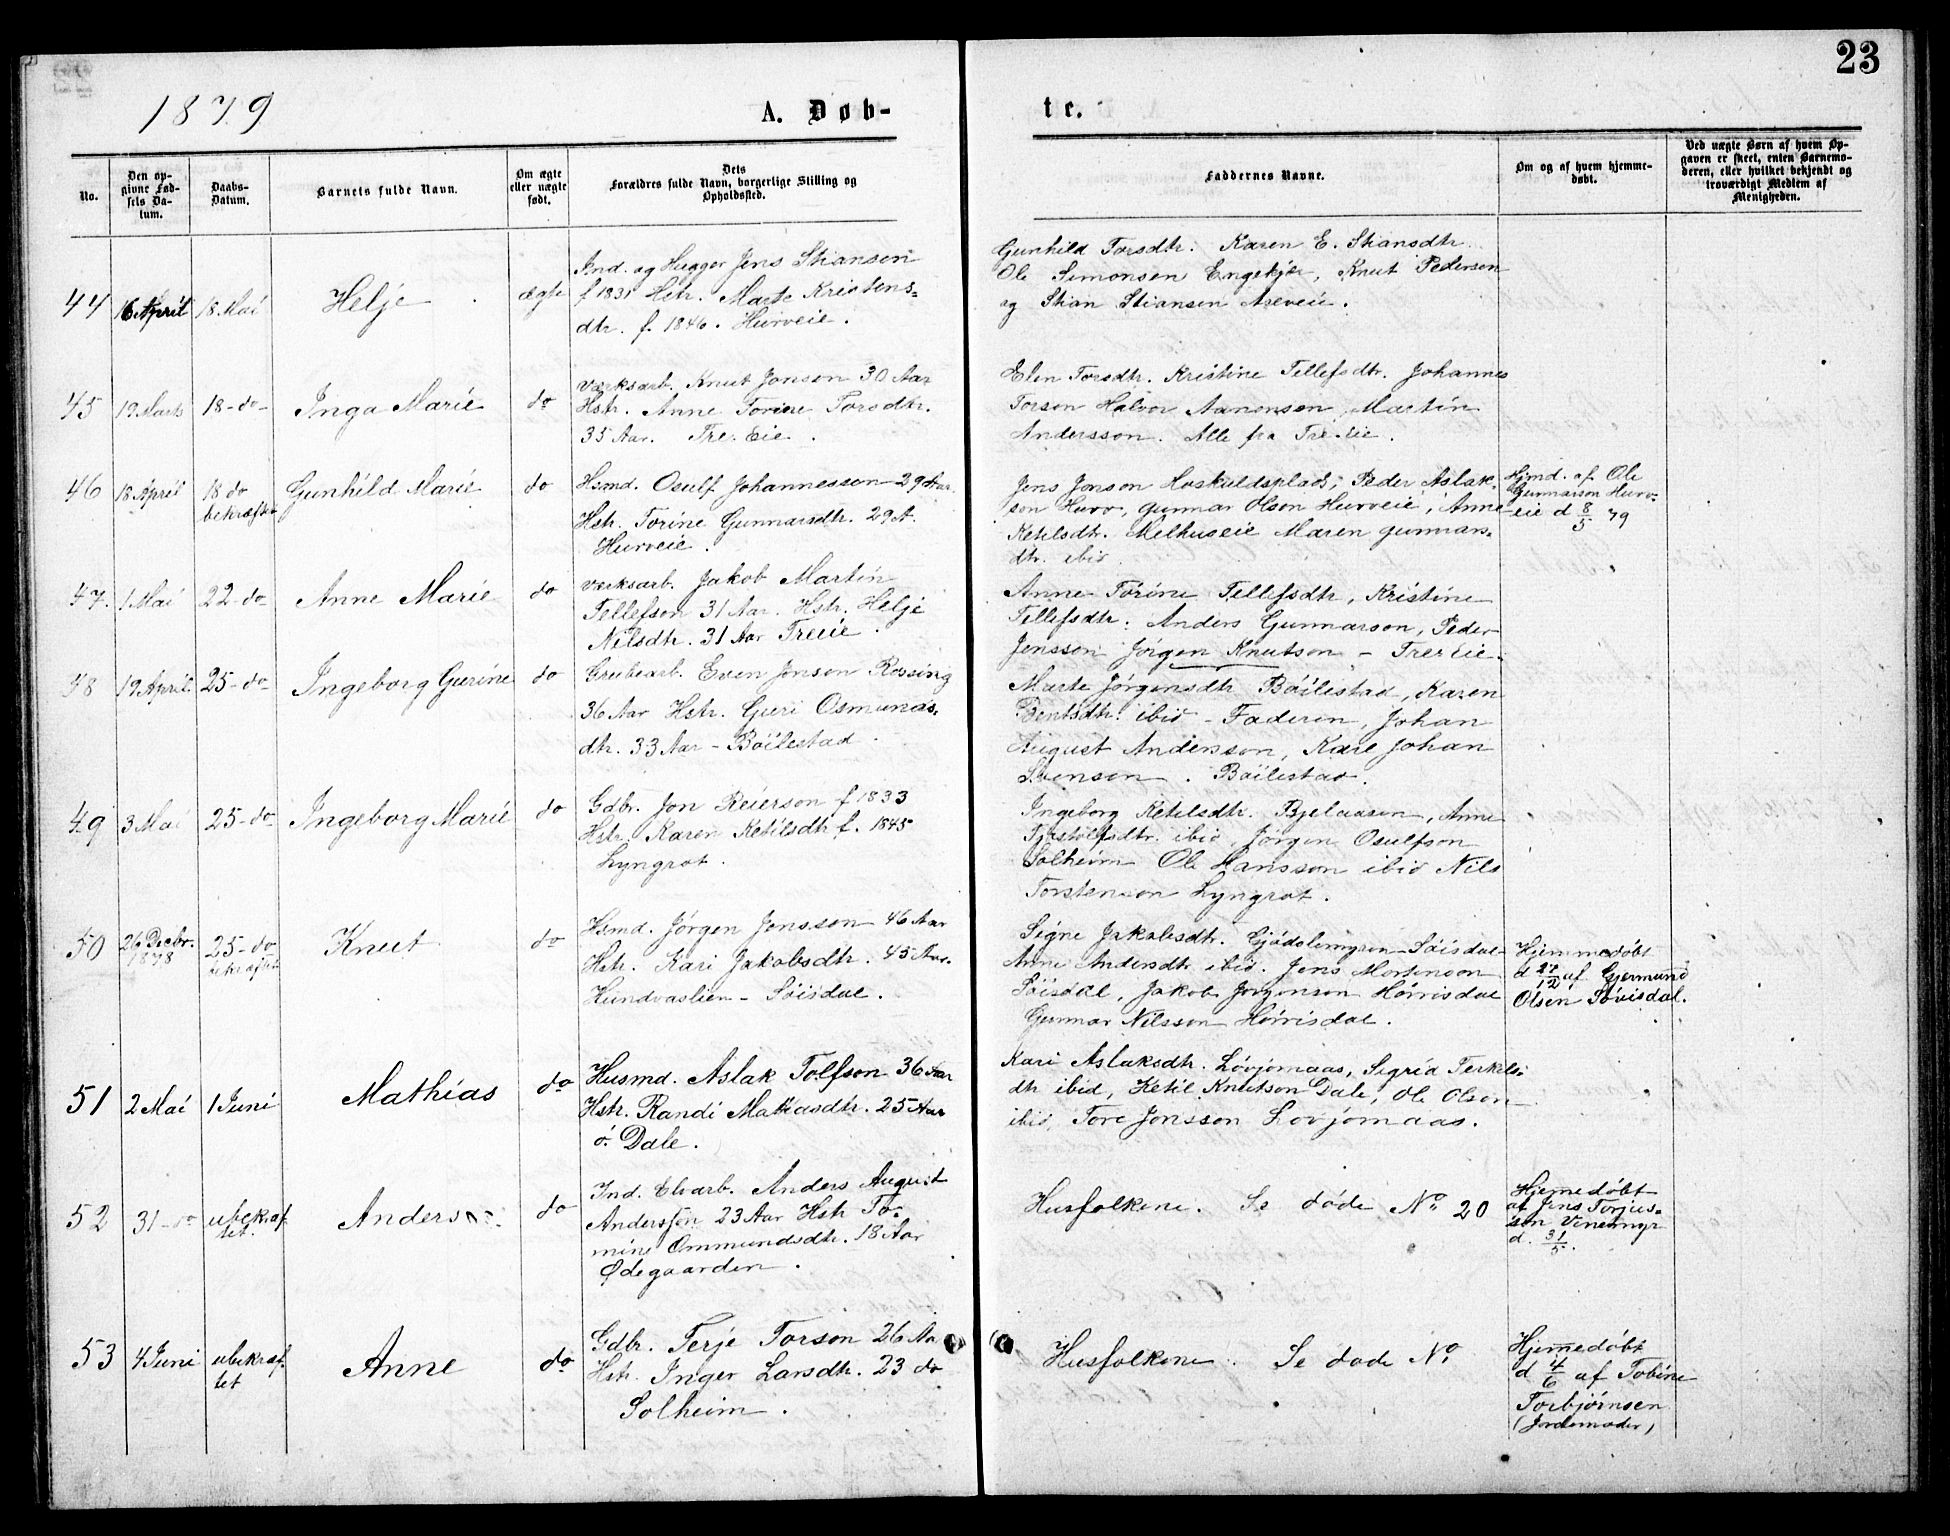 23
1879
A. Døb-
te.
No.
Den op-
givne Fød-
sels Da-
tum.
Daabs-
Datum.
Barnets fulde Navn.
Om ægte
eller uægte
født.
Dets
Forældres fulde Navn, borgerlige Stilling og
Opholdssted.
Faddernes Navne.
Om og af hvem hjemme-
døbt.
Ved uægte Børn af hvem Op-
gaven er skeet, enten Barnemo-
deren, eller hvilket bekjendt og
troværdigt Medlem af
Menigheden.
44
16 April
18 Mai
Helje
ægte
Ind. og Hugger Jens Stiansen
f 1831 Hstr. Marte Kristens-
dtr. f. 1846. Hurveie.
Gunhild Torsdtr. Karen E. Stiansdtr
Ole Simonsen Engekjer, Knut Pedersen
og Stian Stiansen Aseveie.
45
19 Marts
18-do-
Inga Marie
do
Værksarb. Knut Jonson 30 Aar
Hstr. Anne Torine Torsdtr.
35 Aar. Tre. Eie.
Elen Torsdtr. Kristine Tellefsdtr. Johannes
Torson Halvor Aanonsen, Martin
Andersson. Alle fra Tre Eie.
46
18 April
18 do
bekræftet
Gunhild Marie
do
Hsmd. Osulf Johannesson 29 Aar.
Hstr. Torine Gunnarsdtr. 29 A.
Hurveie.
Jens Jonson Hoskuldsplads, Peder Aslak-
son Hurv, Gunnar Olson Hurveie, Anne
Ketilsdtr. Melhuseie Maren Gunnars-
dtr. ibid
Hjmd. af Ole
Gunnarson Hurv-
eie d 8/5 79
47.
1 Mai
22-do
Anne Marie
do
Værksarb. Jakob Martin
Tellefson 31 Aar. Hstr. Helje
Nilsdtr. 31 Aar Treeie.
Anne Torine Tellefsdtr, Kristine
Tellefsdtr. Anders Gunnarson, Peder
Jensson Jörgen Knutson - Tre Eie.
48
19 April
25-do
Ingeborg Gurine
do
Grubearb. Even Jonson Rossing
36 Aar Hstr. Guri Osmunds-
dtr. 33 Aar - Böilestad.
Marte Jörgensdtr Böilestad, Karen
Bentsdtr. ibid - Faderen, Johan
August Andersson, Karl Johan
Svenson. Böilestad.
49
3 Mai
25-do
Ingeborg Marie
do
Gdbr. Jon Reierson f 1833
Hstr. Karen Ketilsdtr f. 1845
Lyngrot.
Ingeborg Ketilsdtr. Bjelaasen, Anne
Tjostolfsdtr. ibid, Jörgen Osulfson
Solheim Ole Hansson ibid Nils
Torstenson Lyngrot.
50
26 Decbr.
1878
25-do
bekræftet
Knut
do
Hsmd. Jörgen Jonsson 46 Aar
Hstr. Kari Jakobsdtr. 45 Aar.
Hundvaslien - Söisdal.
Signe Jakobsdtr. Söisdal
Anne Andersdtr ibid. Jens Mortenson
Söisdal, Jakob Jörgenson Hörrisdal
Gunnar Nilsson Hörrisdal.
Hjemmedöbt
d 27/12 af Gjermund
Olsen Sövisdal.
51
2 Mai
1 Juni
Mathias
do
Husmd. Aslak Tolfson 36 Aar
Hstr. Randi Mathiasdtr. 25 Aar
ö. Dale.
Kari Aslaksdtr. Lövjomaas, Sigrid Terkels-
dtr ibid, Ketil Knutson Dale, Ole Olson
ibid, Tore Jonsson Lovjomaas.
52
31-do
ubekræf-
tet.
Anders
do
Ind. Elvarb. Anders August
Andersson 23 Aar Hstr To-
mine Ommundsdtr. 18 Aar
Ødegaarden.
Husfolkene. Se döde No 20
Hjemedöbt
af Jens Torjus-
sen Vinemyr
d. 31/5.
53
4 Juni
ubekræf-
tet
Anne
do
Gdbr. Terje Torson 26 Aar
Hstr. Inger Larsdtr. 23 do
Solheim.
Husfolkene. Se döde No
Hjemedöbt
d 4/6 af Tobine
Torbjörnsen
(Jordemoder)